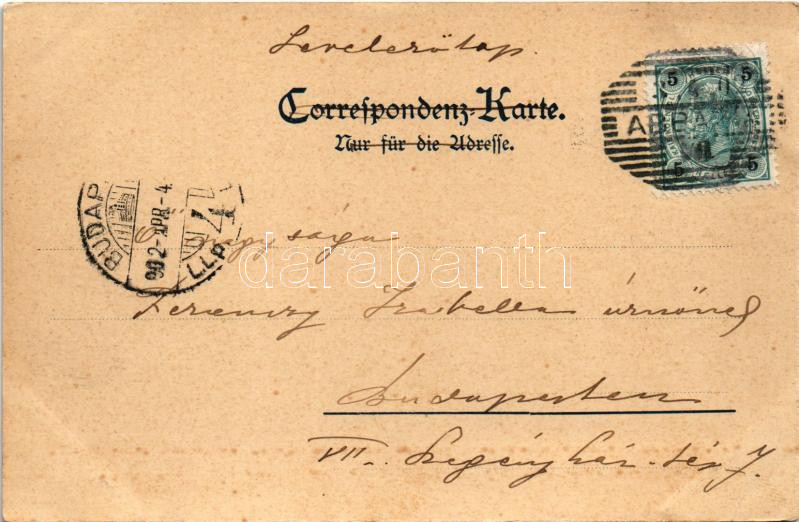 Levelezőlap.
Correspondenz-Karte.
Nur für die Adresse.
5 5
ABBA
5 5
BUDAP
902 APR-4
4
Ő nagysága
darabanth
Ferenczy Izabella úrnőnek
Budapesten
VII. Szegényház-tér 7.